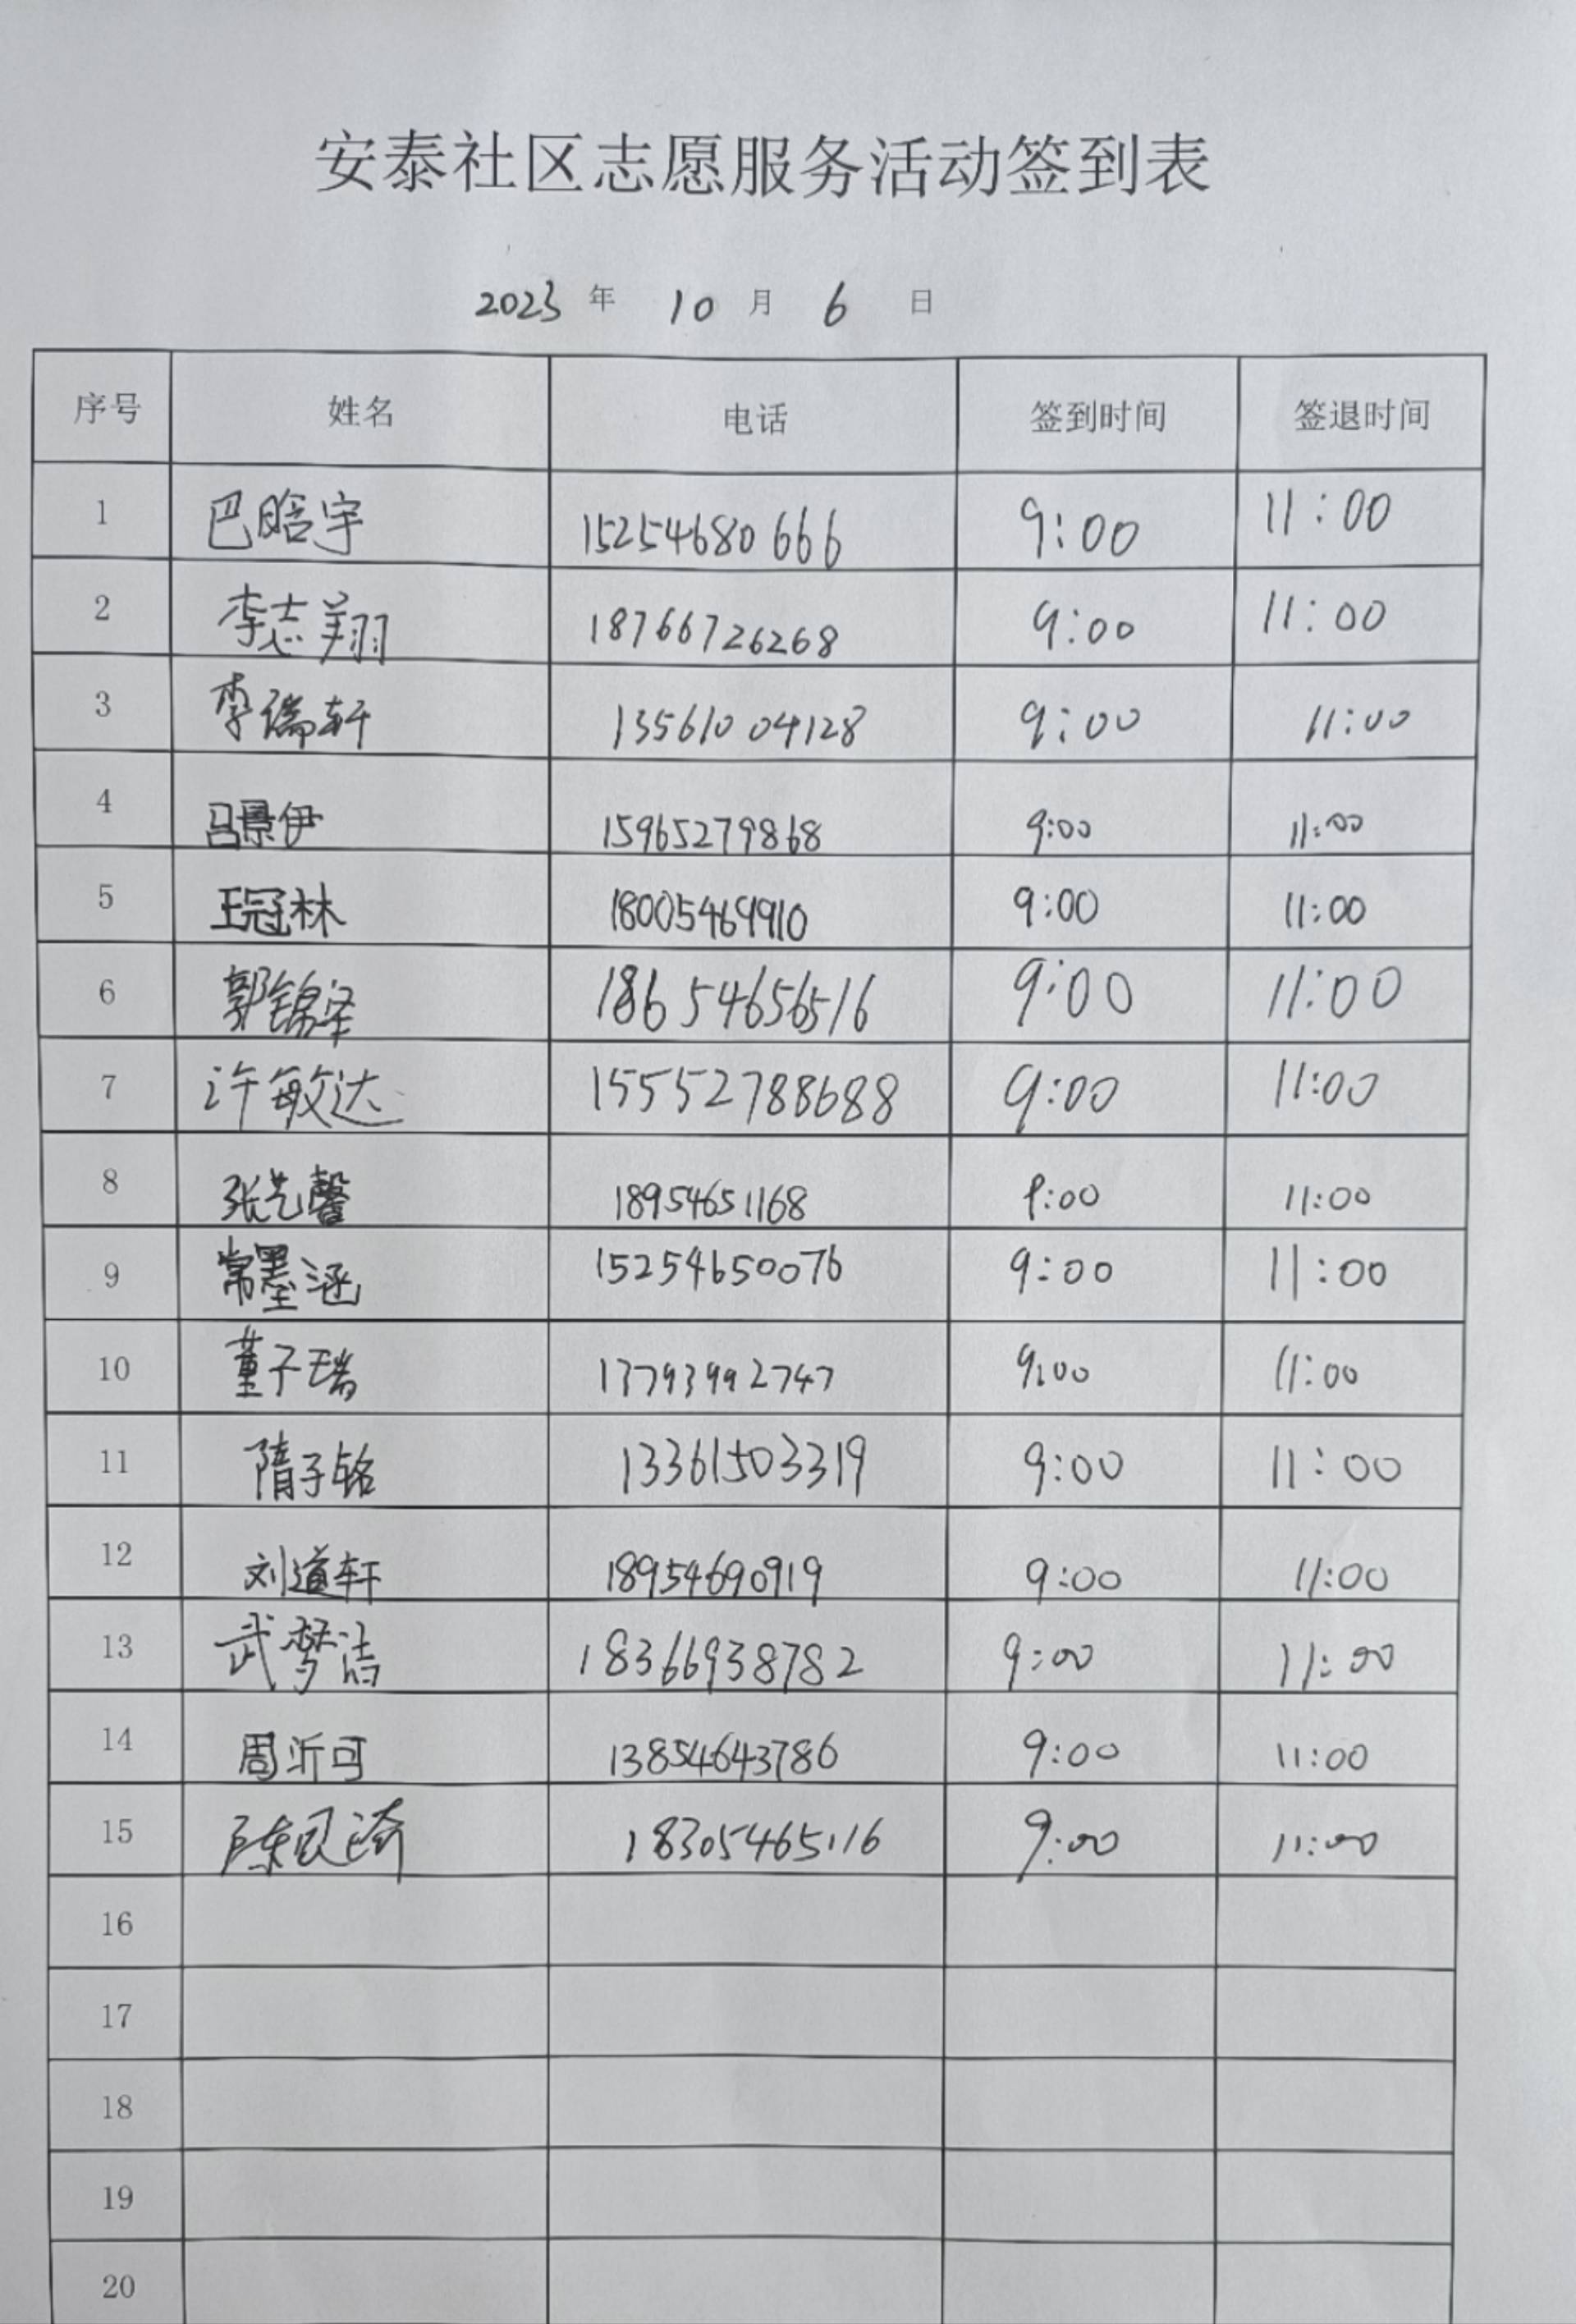 安泰社区志愿服务活动签到表
2023 年 10 月 6 日
序号 姓名 电话 签到时间 签退时间
1 巴晗宇 15254680666 9:00 11:00
2 李志翔 18766726268 9:00 11:00
3 李瑞轩 13561004128 9:00 11:00
4 吕景伊 15965279868 9:00 11:00
5 王冠林 18005469910 9:00 11:00
6 郭锦泽 18654656516 9:00 11:00
7 许敏达 15552788688 9:00 11:00
8 张艺馨 18954651168 9:00 11:00
9 常墨涵 15254650076 9:00 11:00
10 董子瑞 13793992747 9:00 11:00
11 隋子铭 13361503319 9:00 11:00
12 刘道轩 18954690919 9:00 11:00
13 武梦洁 18366938782 9:00 11:00
14 周沂可 13854643786 9:00 11:00
15 18305465116 9:00 11:00
16
17
18
19
20